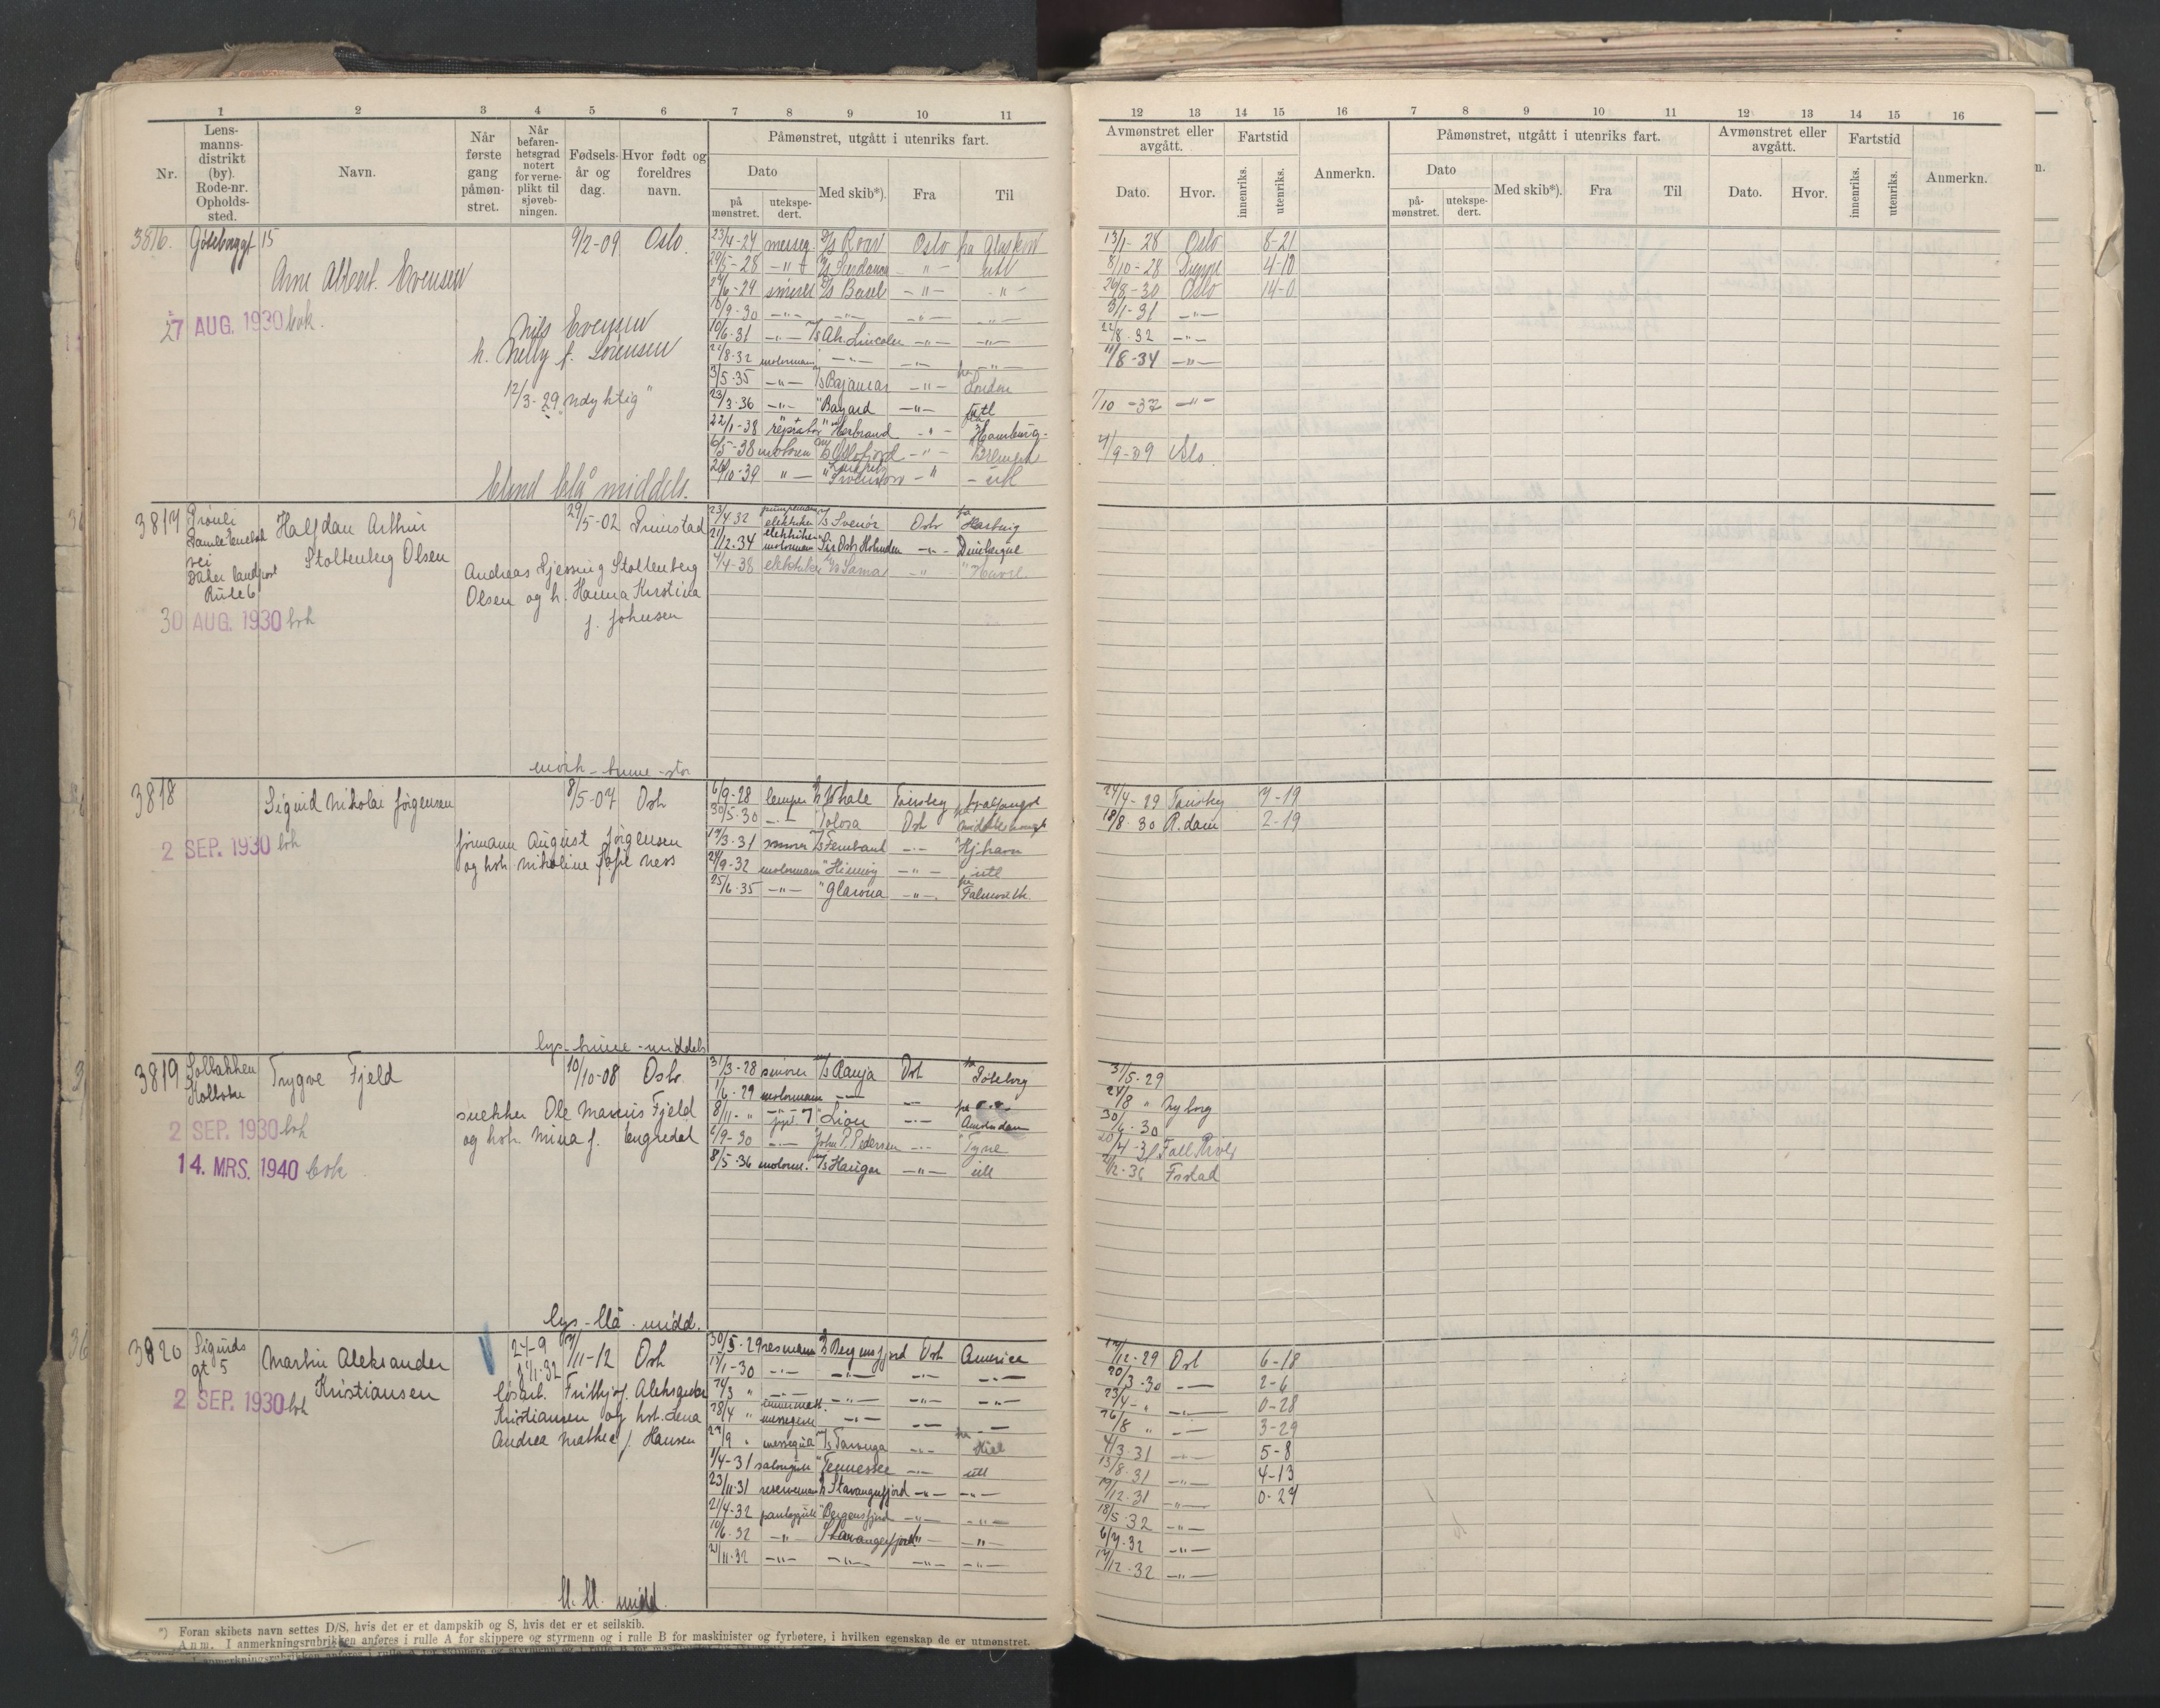 1 2 3 4 5 6 7 8 9 10 11
Nr.
Lens-
manns-
distrikt
(by).
Rode-nr.
Opholds-
sted.
Navn.
Når
første
gang
påmøn-
stret.
Når
befaren-
hetsgrad
notert
for verne-
plikt til
sjøveb-
ningen.
Fødsels-
år og
dag.
Hvor født og
foreldres
navn.
Påmønstret, utgått i utenriks fart.
Dato
på
mønstret.
utekspe-
dert.
Med skib*).
Fra
Til
3816. Gøteborggt 15 9/2-09 Oslo.
Arne Albert Evensen
27 AUG. 1930 bok.
Nils Evensen
h. Nelly f. Sørensen
12/3-29 "udyktig"
23/4-27 messeg. D/S Roar Oslo fra Glasgow
29/5-28 -"- -"- utl
27/6-29 smører Basel -"- -"-
10/9-30 -"- -"- -"- -"-
10/6-31 -"- Ab. Lincoln -"- -"-
22/8-32 motormann -"- -"- -"-
3/5-35 -"- Bajamar -"- London
23/3-36 -"- "Bayard -"- utl
22/1-38 reparatør "Herbrand -"- Hamburg
6/5-38 Oslofjord -"-
26/10-39 " - -"- - utl
blond blå middels.
3817 29/5-02 Grimstad
Halfdan Arthur
Stoltenberg Olsen
Andreas Gjessing Stoltenberg
Olsen og h. Hanna Kirstina
f. Johnsen
30 AUG. 1930 bok
23/4 32 pumpemann elektriker Svenør Oslo fra Harburg
21/12-34 elektriker motormann Sir Osborn Holmden -"- Dunkerque
4/4-38 elektriker M/S Samar -"- "Havre
mørk - brune - stor
3818 Sigurd Nikolai Jørgensen 8/5-07 Oslo
2 SEP. 1930 bok
formann August Jørgensen
og hst. Nikoline f. Næss
6/9-28 lemper Whale Tønsberg hvalfangst
30/5-30 -"- Tolosa Oslo
19/3-31 smører Fernbank -"- "Kj.havn
24/9-32 motormann "Høegh -"- utl
25/6-35 -"- "Glarona -"- fra Falmouth.
lys - brune - middels
3819 Solbakken
Kolbotn
Trygve Fjeld 10/10-08 Oslo.
2 SEP. 1930 bok
14. MRS. 1940 bok
snekker Ole Marius Fjeld
og hst. Mina f. Engredal
31/3-28 smører M/S Ranja Oslo fra Gøteborg
1/6-29 motormann -"- -"-
8/11-" -"- "Lion -"- Amsterdam
6/9-30 -"- "John P. Pedersen -"- "Tyne
8/5-36 motorm. Haugar -"- utl
lys - blå - midd.
3820 Sigurds
gt 5
Martin Aleksander
Kristiansen
24-9
1/11-32
7/11-12 Oslo
2 SEP. 1930 bok
løsarb. Frithjof Aleksander
Kristiansen og hst. Lena
Andrea Mathea f. Hansen
30/5-29 resmann D/S Bergensfjord Oslo America
15/1-30 -"- -"- " -"-
24/3 " -"- -"- -"- -"-
28/4 " messegutt -"- -"- -"-
27/9 " messegutt Taronga -"- fra Kiel
1/4-31 salongutt "Tennessee -"- utl
23/11-31 reservemann Stavangerfjord -"- -"-
21/4-32 pantrygutt "Bergensfjord -"- -"-
10/6-32 -"- Stavangerfjord" - -"-
21/11-32 -"- -"- -"- -"-
bl. bl. midd.
*) Foran skibets navn settes D/S, hvis det er et dampskib og S, hvis det er et seilskib.
Anm. I anmerkningsrubrikken anføres i rulle A for skippere og styrmenn og i rulle B for maskinister og fyrbøtere, i hvilken egenskap de er utmønstret.
12 13 14 15 16 7 8 9 10 11 12 13 14 15 16
Avmønstret eller
avgått.
Dato.
Hvor.
Fartstid
innenriks.
utenriks.
Anmerkn.
Påmønstret, utgått i utenriks fart.
Dato
på-
mønstret.
utekspe-
dert.
Med skib*).
Fra
Til
Avmønstret eller
avgått.
Dato.
Hvor.
Fartstid
innenriks.
utenriks.
Anmerkn.
13/1-28 Oslo 8-21
8/10-28 Dieppe 4-10
26/8-30 Oslo 14-0
3/1-31 -"-
22/8-32 -"-
11/8-34 -"-
7/10-37 -"-
4/9-39 Oslo
24/4-29 Tønsberg 7-19
18/8-30 R.dam 2-19
31/5-29
24/8 " Nyborg
30/6-30
20/4-31 Fall River
2/12-36 F.stad
17/12-29 Oslo 6-18
20/3-30 -"- 2-6
23/4-" -"- 0-28
26/8 " -"- 3-29
4/3-31 -"- 5-8
13/8-31 -"- 4-13
19/12-31 -"- 0-27
18/5-32 -"-
6/7-32 -"-
17/12-32 -"-